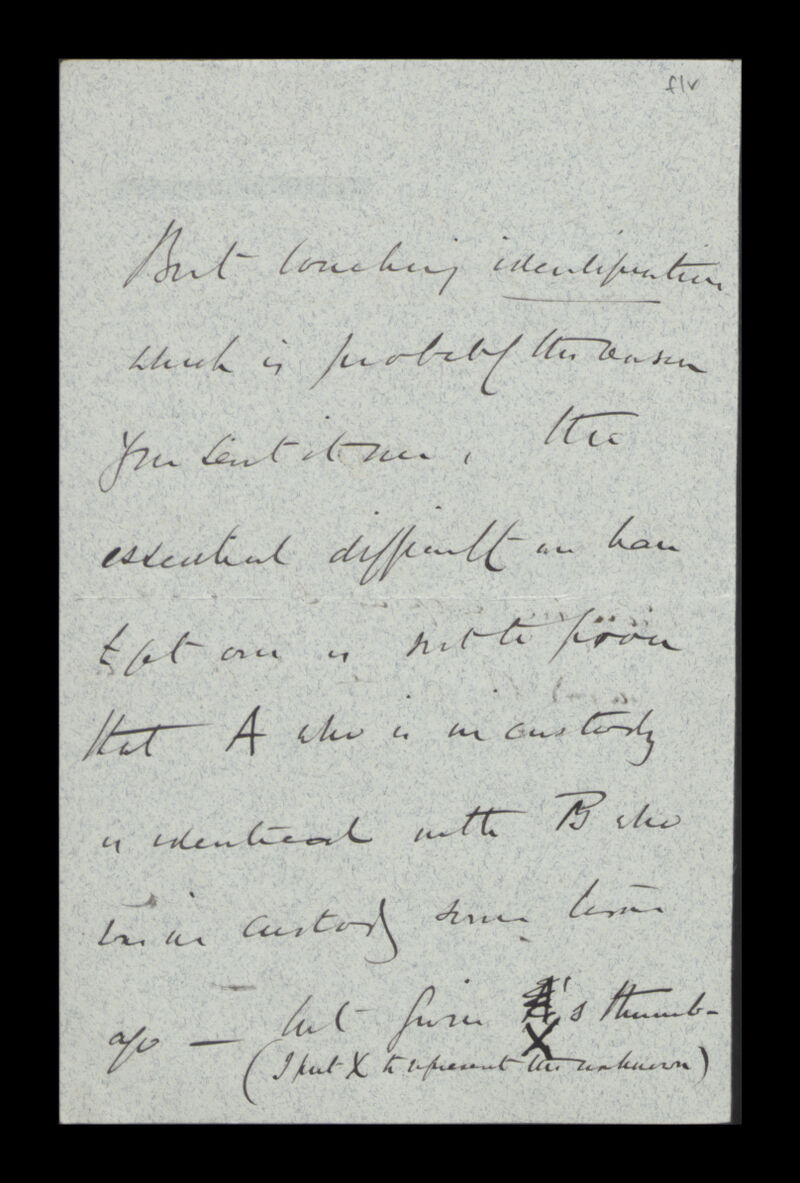 f1v
But touching identification
which is probably the reason
you sent it me, the
essential difficulty we have
to get over is not to prove
that A who is in custody
is identical with B who
was in custody some time
ago — but given X's thumb-
(I put X to represent the unknown)